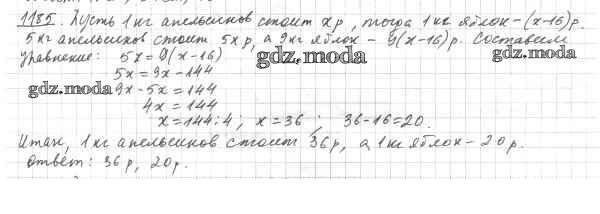 1185. Пусть 1 кг апельсинов стоит х р, тогда 1 кг яблок – (х-16) р.
5 кг апельсинов стоит 5х р, а 9 кг яблок – 9(х-16) р. Составим
уравнение: 5х = 9(х-16)
gdz.moda
gdz.moda
5х = 9х - 144
gdz.moda
9х - 5х = 144
4х = 144
х = 144 : 4 ; х = 36 ; 36 - 16 = 20.
Итак, 1 кг апельсинов стоит 36 р, а 1 кг яблок – 20 р.
Ответ: 36 р, 20 р.